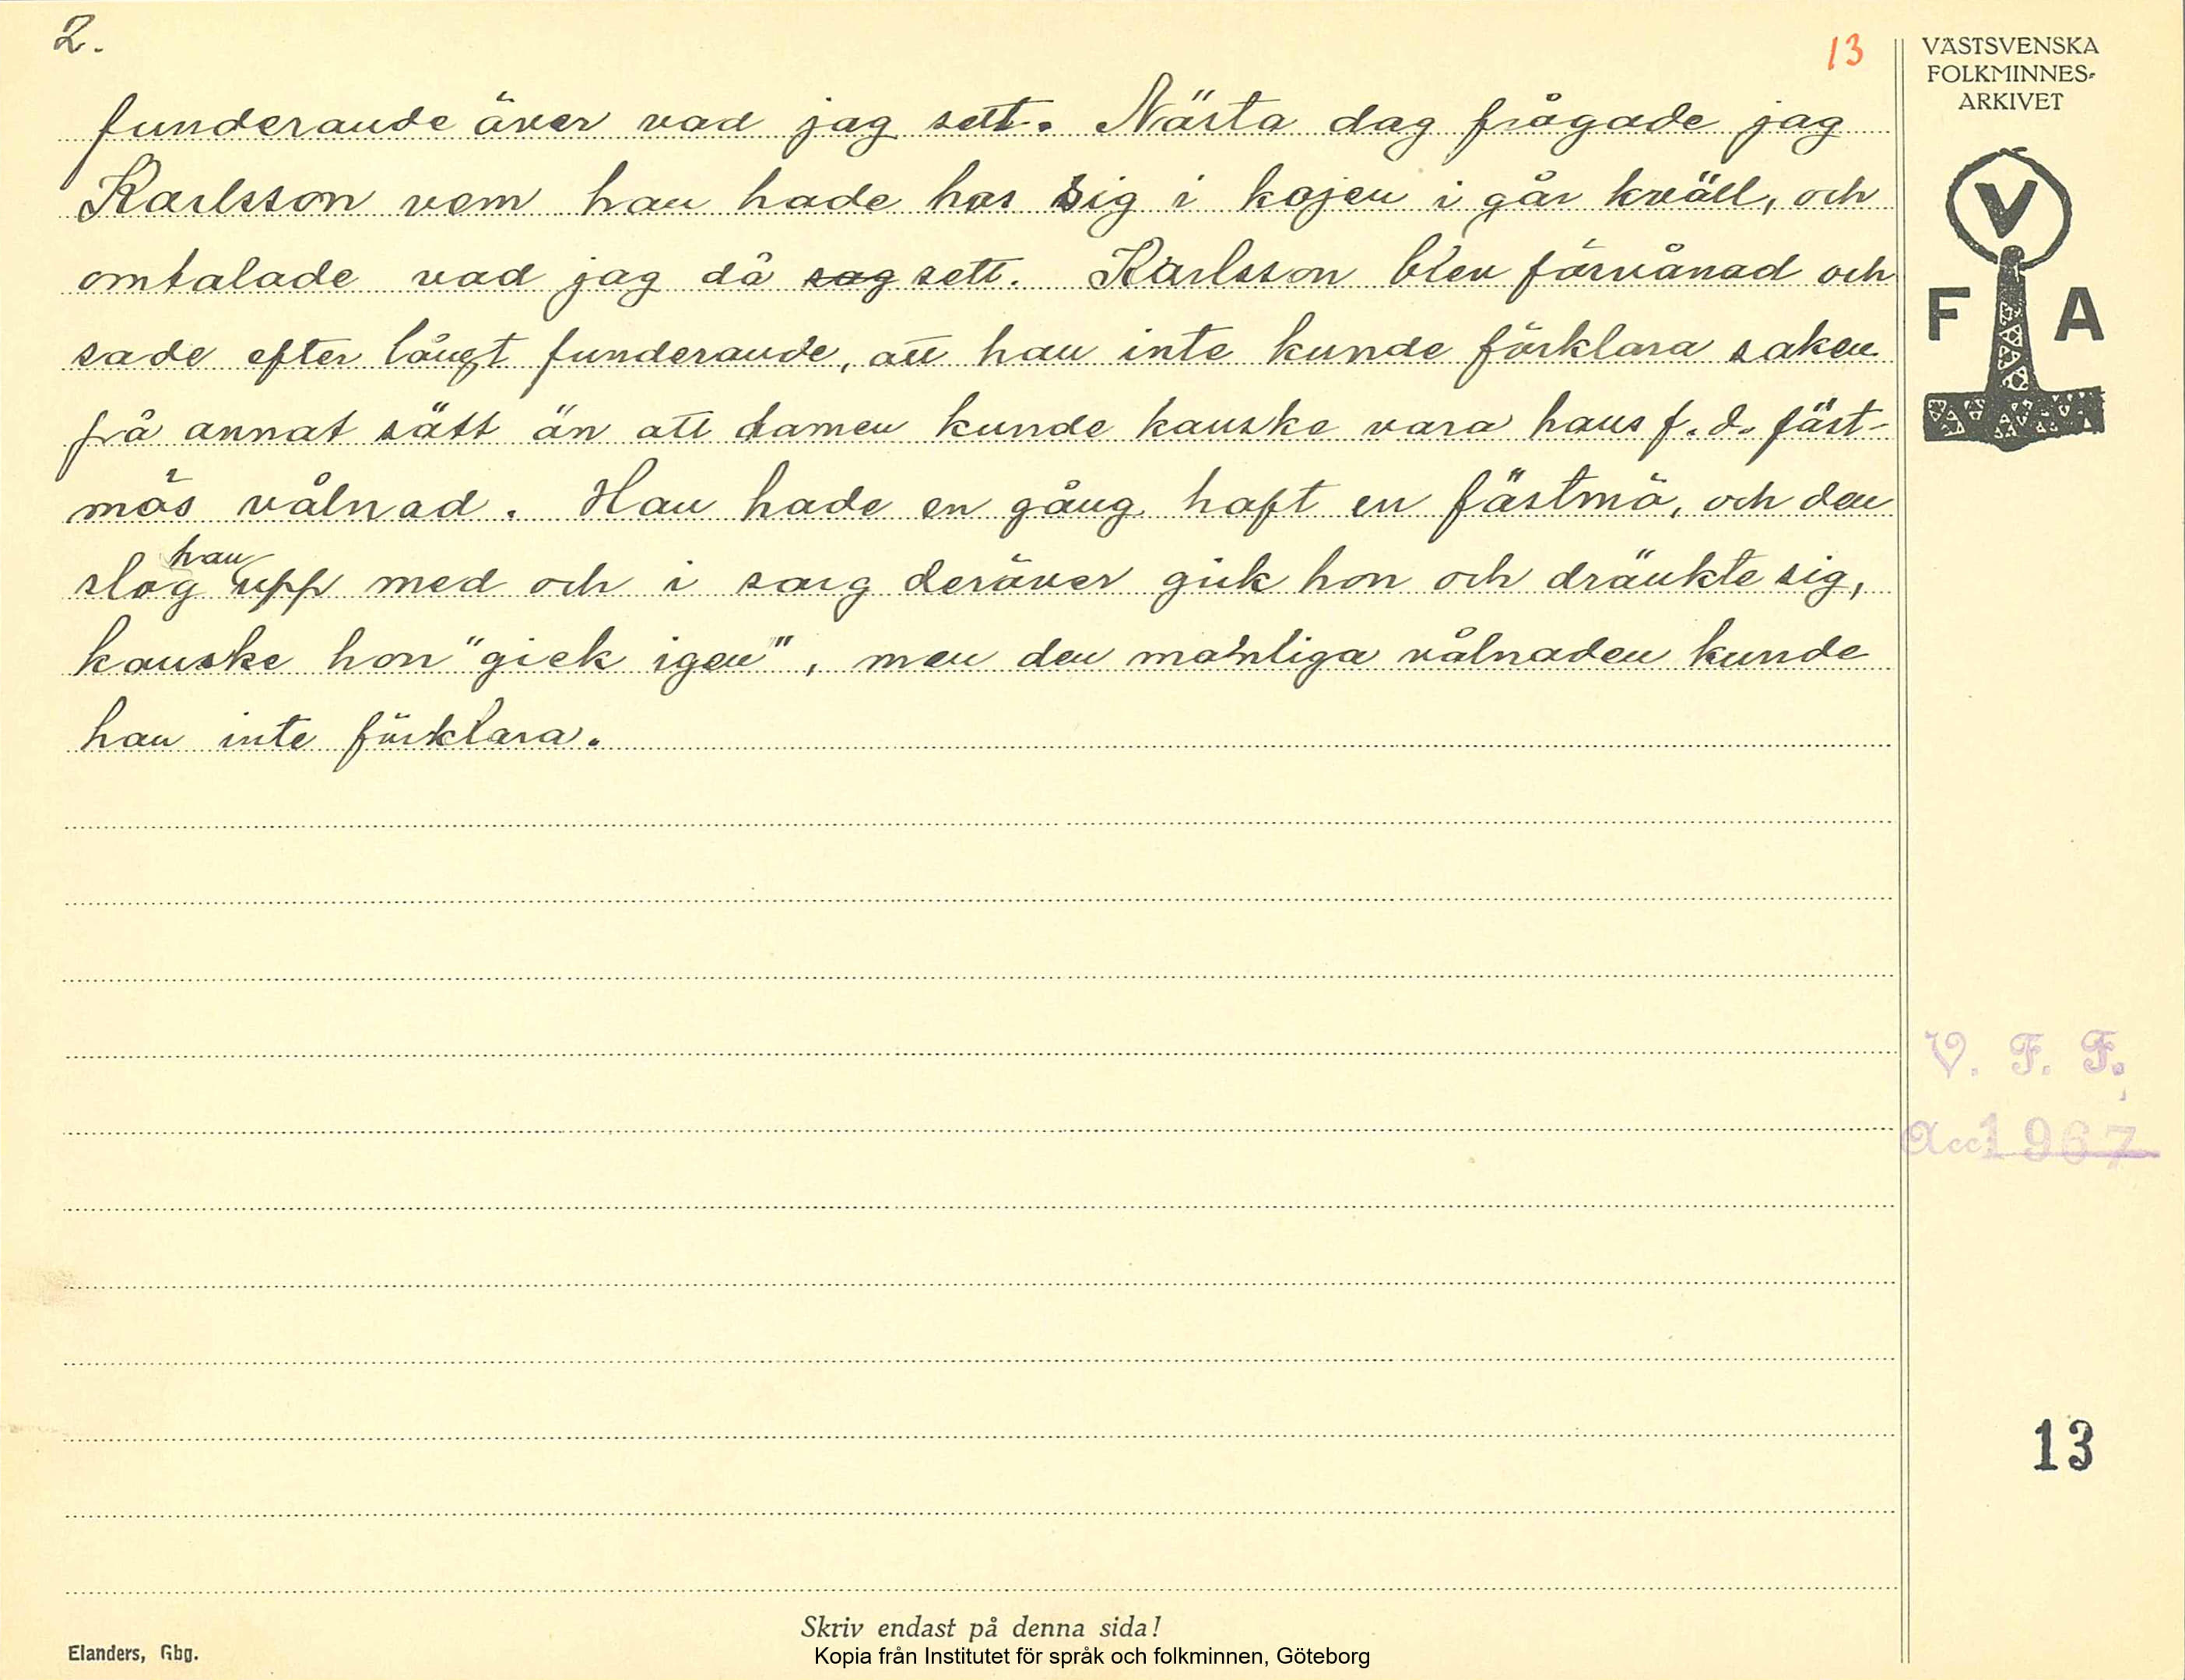 2.
13
VÄSTSVENSKA
FOLKMINNES-
ARKIVET
V
F A
funderande över vad jag sett. Närta dag frågade jag
Karlsson vem han hade hos sig i kojen i går kväll, och
omtalade vad jag då sag sett. Karlsson blev förvånad och
sade efter långt funderande, att han inte kunde förklara saken
på annat sätt än att damen kunde kanske vara hans f.d. fäst-
mös vålnad. Han hade en gång haft en fästmö, och den
han
slog upp med och i sorg deröver gick hon och dränkte sig,
kanske hon "gick igen", men den manliga vålnaden kunde
han inte förklara.
V. F. F.
Acc 1967
13
Skriv endast på denna sida!
Elanders, Gbg.
Kopia från Institutet för språk och folkminnen, Göteborg